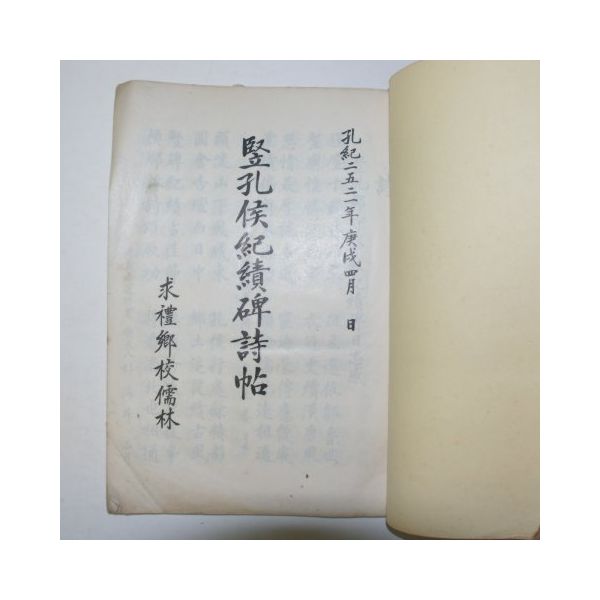 孔紀二五二一年庚戌四月 日
竪孔侯紀績碑詩帖
求禮鄉校儒林